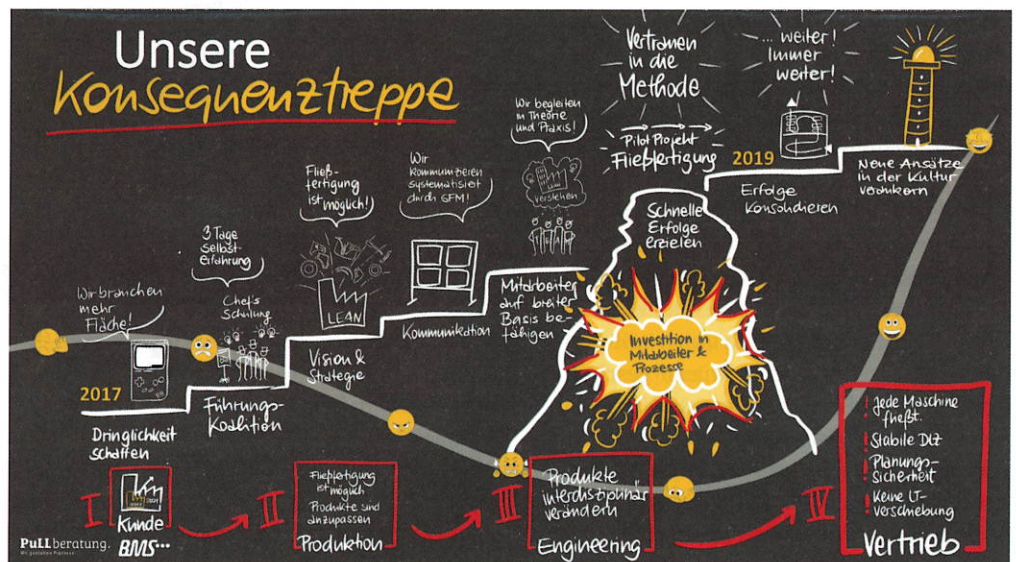 Unsere
Konsequenztreppe
Wir brauchen
mehr
Fläche!
2017
Dringlichkeit
schaffen
3 Tage
Selbst-
erfahrung
Chefs
Schulung
Führungs-
Koalition
Fließ-
fertigung
ist möglich!
LEAN
Vision &
Strategie
Wir
kommunizieren
systematisiert
durch GFM!
Kommunikation
Wir begleiten
in Theorie
und Praxis!
LEAN
verstehen
Mitarbeiter
auf breiter
Basis be-
fähigen
Vertrauen
in die
Methode
Pilot Projekt
Fließfertigung
Schnelle
Erfolge
erzielen
Investition in
Mitarbeiter &
Prozesse
... weiter!
Immer
weiter!
2019
Erfolge
Konsolidieren
Neue Ansätze
in der Kultur
verankern
I
Kunde
BMS...
II
Fließfertigung
ist möglich
Produkte sind
anzupassen
Produktion
III
Produkte
interdisziplinär
verändern
Engineering
IV
! Jede Maschine
fließt.
! Stabile DLZ
! Planungs-
Sicherheit
! Keine LT-
verschiebung
Vertrieb
PuLLberatung.
Wir gestalten Prozesse